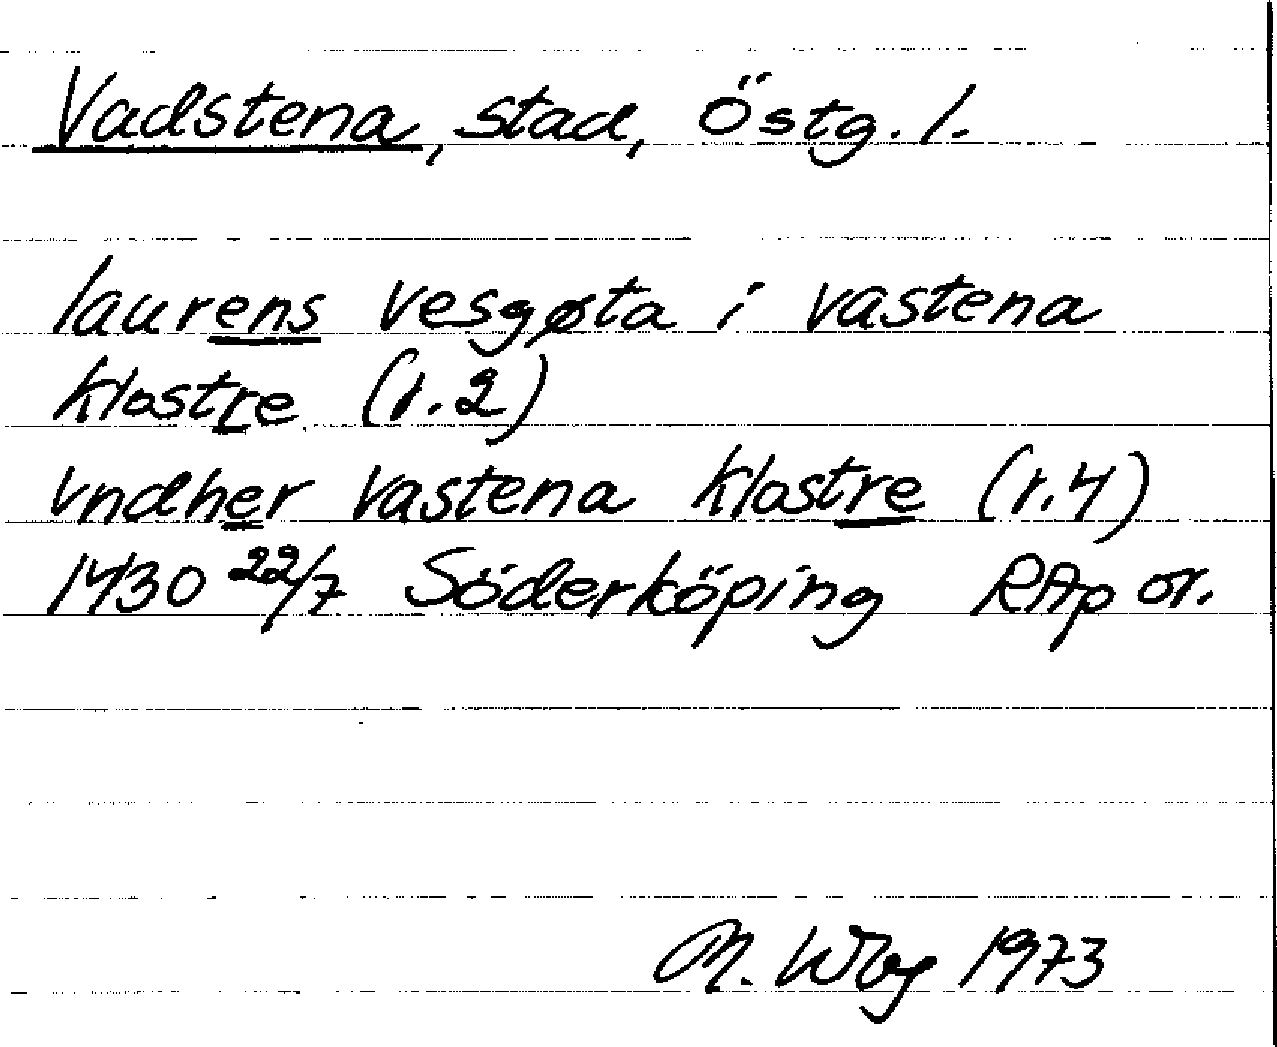 Vadstena, stad, Östg. l.
laurens vesgøta i vastena
klostre (r. 2)
vndher vastena klostre (r. 4)
1430 22/7 Söderköping RAp or.
M. Wbg 1973